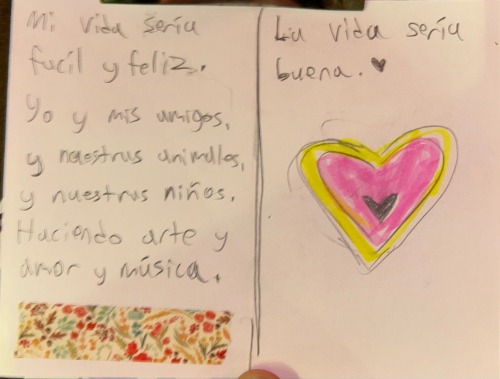 Mi vida sería
fácil y feliz.
Yo y mis amigos,
y nuestrus animales,
y nuestrus niños.
Haciendo arte y
amor y música.
La vida sería
buena. ♥